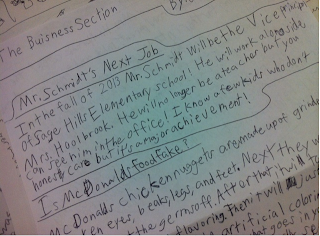 The Buisness Section
By:
Mr. Schmidt's Next Job
In the fall of 2013 Mr. Schmidt will be the Vice
of Sage Hills Elementary school! He will work alongside
Mrs. Hoolbrook. He will no longer be a teacher but you
can see him in the office! I know a few kids who don't
honestly care but it's a major achievement!
Is McDonalds food fake?
McDonalds chicken nuggets are made up of
eyes, beaks, legs, and feet. Next they
the germs off. After that it will
flavoring. Then it will
artificial
goes in